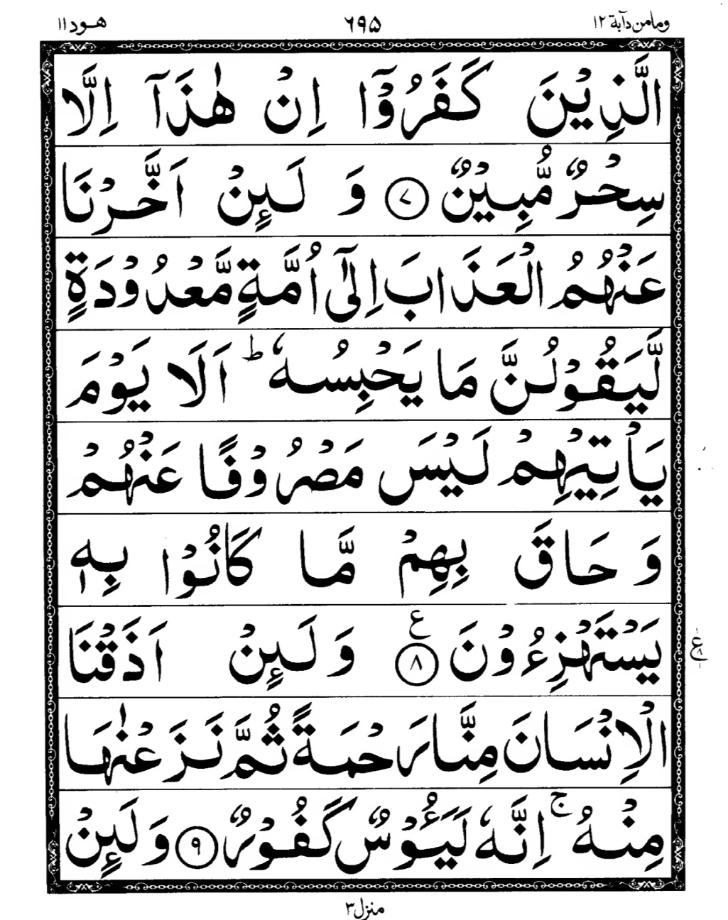 وما من دآبة ١٢ ٦٩٥ هود ١١
الَّذِيْنَ كَفَرُوْٓا اِنْ هٰذَآ اِلَّا
سِحْرٌ مُّبِيْنٌ ﴿٧﴾ وَ لَىِٕنْ اَخَّرْنَا
عَنْهُمُ الْعَذَابَ اِلٰٓى اُمَّةٍ مَّعْدُوْدَةٍ
لَّيَقُوْلُنَّ مَا يَحْبِسُهٗ ؕ اَلَا يَوْمَ
يَاْتِيْهِمْ لَيْسَ مَصْرُوْفًا عَنْهُمْ
وَ حَاقَ بِهِمْ مَّا كَانُوْا بِهٖ
يَسْتَهْزِءُوْنَ ﴿٨﴾ ع وَلَىِٕنْ اَذَقْنَا
ع ٨
الْاِنْسَانَ مِنَّا رَحْمَةً ثُمَّ نَزَعْنٰهَا
مِنْهُ ۚ اِنَّهٗ لَيَـُٔوْسٌ كَفُوْرٌ ﴿٩﴾ وَ لَىِٕنْ
منزل ٣